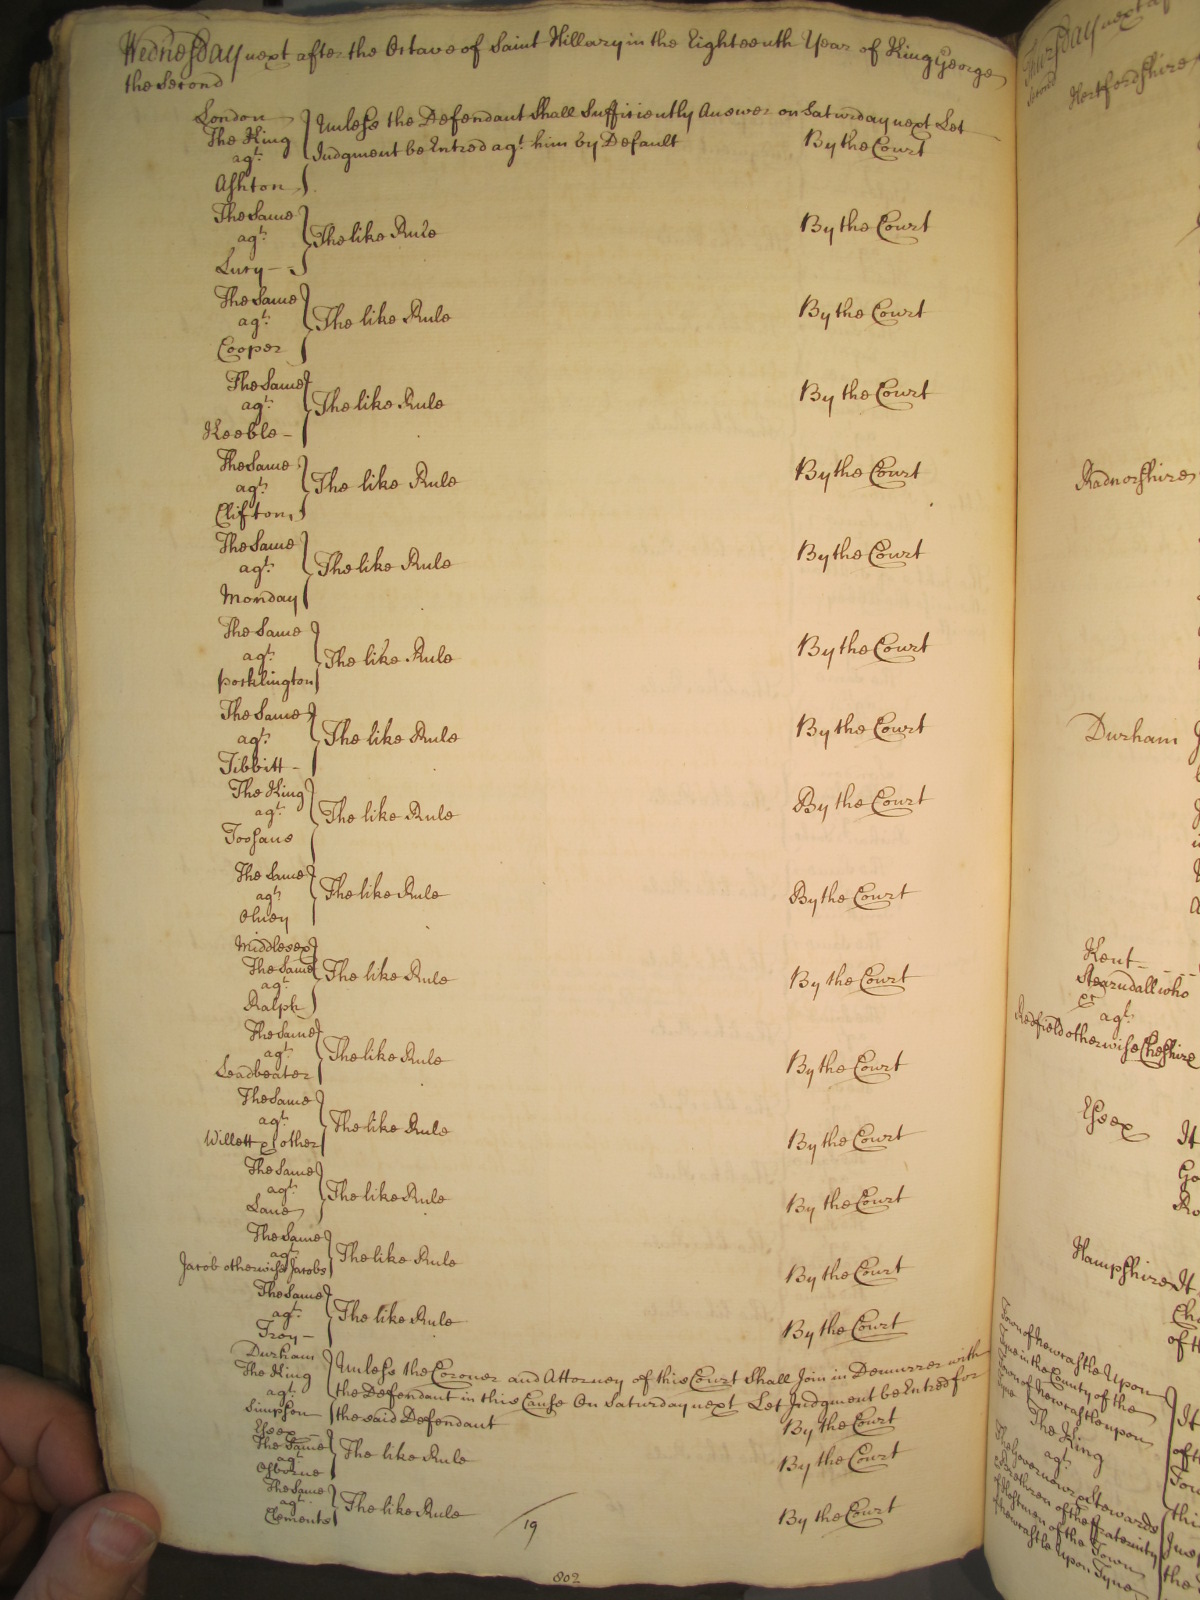 Wednesday next after the Octave of Saint Hillary in the Eighteenth Year of King George
the Second
London
The King
agt.
Ashton
Unless the Defendant Shall Sufficiently Answer on Saturday next Let
Judgment be Entred agt. him by Default
By the Court
The Same
agt.
Lucy
The like Rule
By the Court
The Same
agt.
Cooper
The like Rule
By the Court
The Same
agt.
Keeble
The like Rule
By the Court
The Same
agt.
Clifton
The like Rule
By the Court
The Same
agt.
Monday
The like Rule
By the Court
The Same
agt.
Pocklington
The like Rule
By the Court
The Same
agt.
Tibbitt
The like Rule
By the Court
The King
agt.
The like Rule
By the Court
The Same
agt.
Olney
The like Rule
By the Court
Middlesex
The Same
agt.
Ralph
The like Rule
By the Court
The Same
agt.
Leadbeater
The like Rule
By the Court
The Same
agt.
Willett & other
The like Rule
By the Court
The Same
agt.
Lane
The like Rule
By the Court
The Same
agt.
Jacob otherwise Jacobs
The like Rule
By the Court
The Same
agt.
Troy
The like Rule
By the Court
Durham
The King
agt.
Simpson
Unless the Coroner and Attorney of this Court Shall Join in Demurrer with
the Defendant in this Cause On Saturday next Let Judgment be Entred for
the said Defendant
By the Court
Essex
The Same
agt.
Osborne
The like Rule
By the Court
The Same
agt.
Clements
The like Rule
By the Court
19
802
Thursday next
Second
Hertfordshire
Radnorshire
Durham
Kent
who
agt.
Redfield otherwise Cheshire
Essex
It
Hampshire
It
of th
Town of Newcastle Upon
Tyne in the County of the
Town of Newcastle upon
Tyne
The King
agt.
The Governour Stewards
& Brethren of the ffraternity
of Hostmen of the Town
of Newcastle Upon Tyne